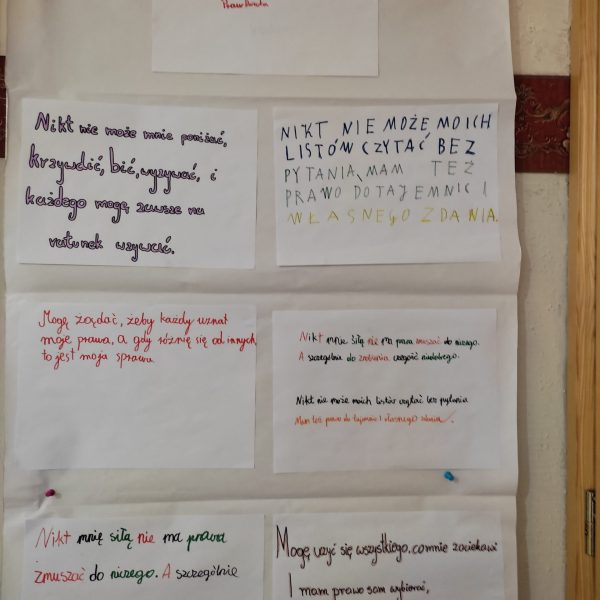 Praw Dziecka
Nikt nie może mnie poniżać,
krzywdzić, bić, wyzywać, i
każdego mogę zawsze na
ratunek wzywać.
NIKT NIE MOŻE MOICH
LISTÓW CZYTAĆ BEZ
PYTANIA, MAM TEŻ
PRAWO DO TAJEMNIC I
WŁASNEGO ZDANIA.
Mogę żądać, żeby każdy uznał
moje prawa, a gdy różnię się od innych,
to jest moja sprawa
Nikt mnie siłą nie ma prawa zmuszać do niczego.
A szczególnie do zrobienia czegoś niedobrego.
Nikt nie może moich listów czytać bez pytania
Mam też prawo do tajemnic i własnego zdania.
Nikt mnię siłą nie ma prawa
zmuszać do niczego. A szczególnie
Mogę uczyć się wszystkiego, co mnie zaciekawi
I mam prawo sam wybierać,